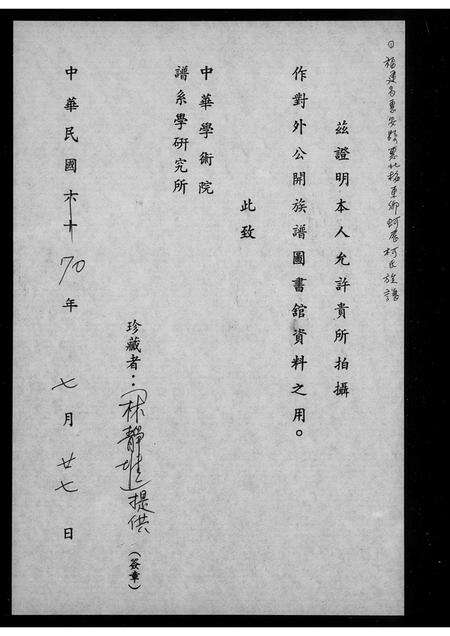 福建省惠安縣惠北
柯氏族譜
茲證明本人允許貴所拍攝
作對外公開族譜圖書館資料之用。
此致
中華學術院
譜系學研究所
珍藏者：林靜 提供（簽章）
中華民國六十 70 年 七 月 廿七 日